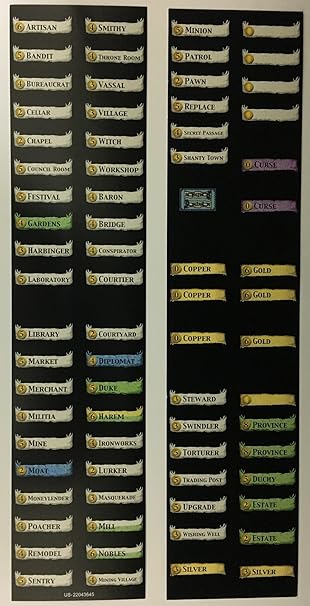 6 ARTISAN
5 BANDIT
4 BUREAUCRAT
2 CELLAR
2 CHAPEL
5 COUNCIL ROOM
5 FESTIVAL
4 GARDENS
3 HARBINGER
5 LABORATORY
5 LIBRARY
5 MARKET
3 MERCHANT
4 MILITIA
5 MINE
2 MOAT
4 MONEYLENDER
4 POACHER
4 REMODEL
5 SENTRY
4 SMITHY
4 THRONE ROOM
3 VASSAL
3 VILLAGE
5 WITCH
3 WORKSHOP
4 BARON
4 BRIDGE
4 CONSPIRATOR
5 COURTIER
2 COURTYARD
4 DIPLOMAT
5 DUKE
6 HAREM
4 IRONWORKS
2 LURKER
3 MASQUERADE
4 MILL
6 NOBLES
4 MINING VILLAGE
US-22043645
5 MINION
5 PATROL
2 PAWN
5 REPLACE
4 SECRET PASSAGE
3 SHANTY TOWN
0 COPPER
0 COPPER
0 COPPER
3 STEWARD
3 SWINDLER
5 TORTURER
5 TRADING POST
5 UPGRADE
3 WISHING WELL
3 SILVER
0 CURSE
0 CURSE
6 GOLD
6 GOLD
6 GOLD
8 PROVINCE
8 PROVINCE
5 DUCHY
2 ESTATE
2 ESTATE
3 SILVER